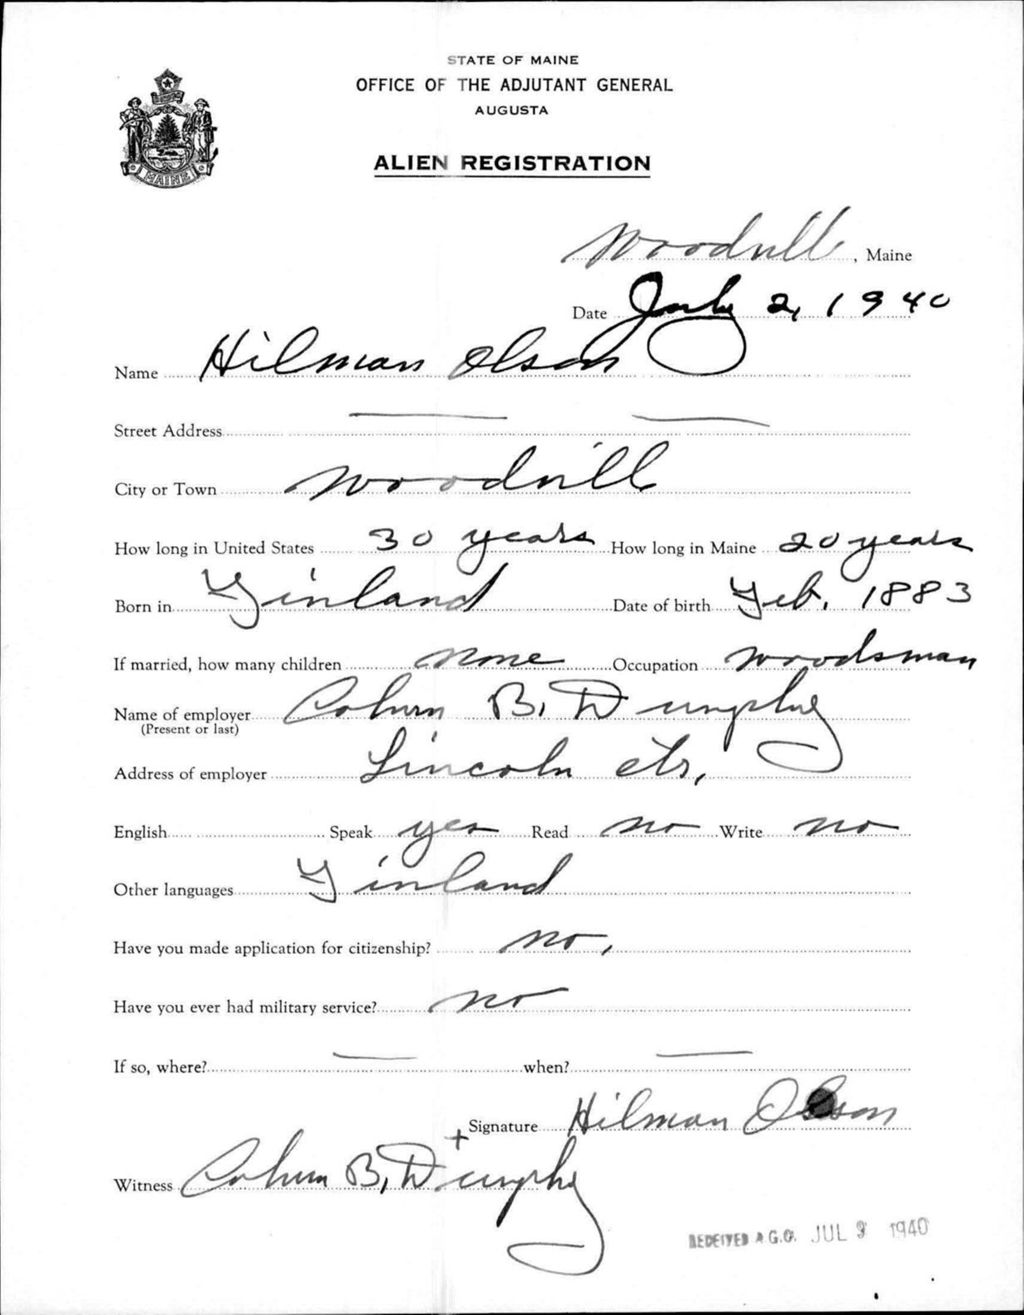 STATE OF MAINE
OFFICE OF THE ADJUTANT GENERAL
AUGUSTA
ALIEN REGISTRATION
MAINE
Woodvill, Maine
Date July 2, 1940
Name Hilman Olson
Street Address
City or Town Woodvill
How long in United States 30 years How long in Maine 20 years
Born in Finland Date of birth Feb. 1883
If married, how many children none Occupation woodsman
Name of employer B. Dunphy
(Present or last)
Address of employer Lincoln
English Speak yes Read no Write no
Other languages Finland
Have you made application for citizenship? no,
Have you ever had military service? no
If so, where? when?
+ Signature Hilman Olson
Witness B. Dunphy
RECEIVED A.G.O. JUL 3 1940